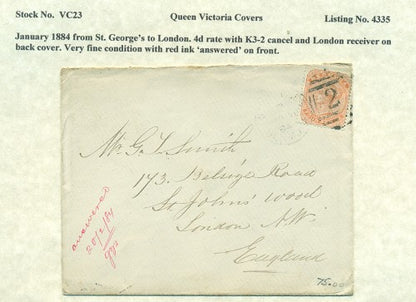 Stock No. VC23 Queen Victoria Covers Listing No. 4335
January 1884 from St. George's to London. 4d rate with K3-2 cancel and London receiver on
back cover. Very fine condition with red ink 'answered' on front.
2
Mr. G. L. Smith
173. Belsize Road
St. Johns' Wood
London N.W.
England
answered
20/2/84
75.00